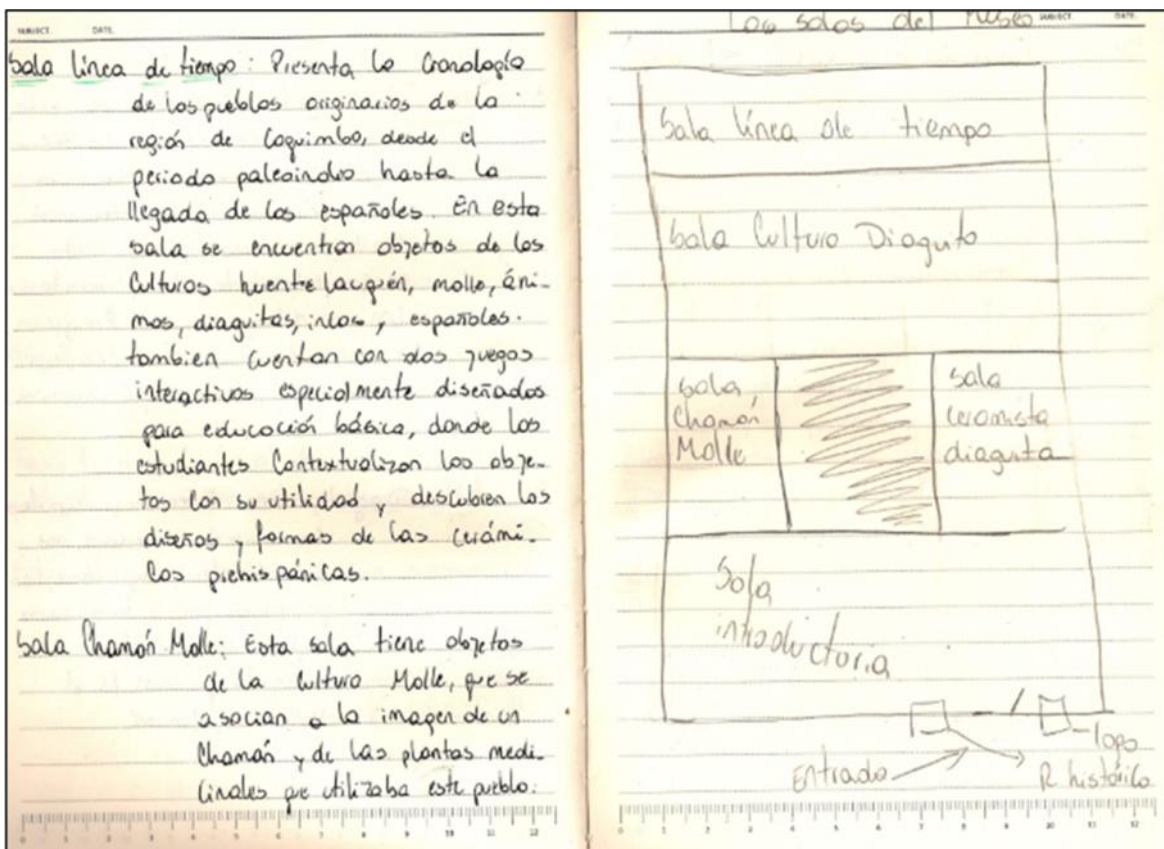 SUBJECT DATE
Sala línea de tiempo: Presenta la Cronología
de los pueblos originarios de la
región de Coquimbo, desde el
periodo paleoindio hasta la
llegada de los españoles. En esta
sala se encuentran objetos de las
Culturas huentelauquén, molle, áni-
mas, diaguitas, inlas, españoles.
tambien cuentan con dos juegos
interactivos especialmente diseñados
para educación básica, donde los
estudiantes Contextualizan los obje-
tos con su utilidad y descubren los
diseños y formas de las cerámi-
cas prehispánicas.
Sala Chamán Molle: Esta sala tiene objetos
de la cultura Molle, que se
asocian a la imagen de un
Chamán y de las plantas medi-
cinales que utilizaba este pueblo.
0 1 2 3 4 5 6 7 8 9 10 11 12
Las salas del Museo SUBJECT DATE
Sala línea de tiempo
Sala Cultura Diaguita
sala
Chamán
Molle
sala
ceramista
diaguita
Sala
introductoria
Entrada
R histórico
0 1 2 3 4 5 6 7 8 9 10 11 12